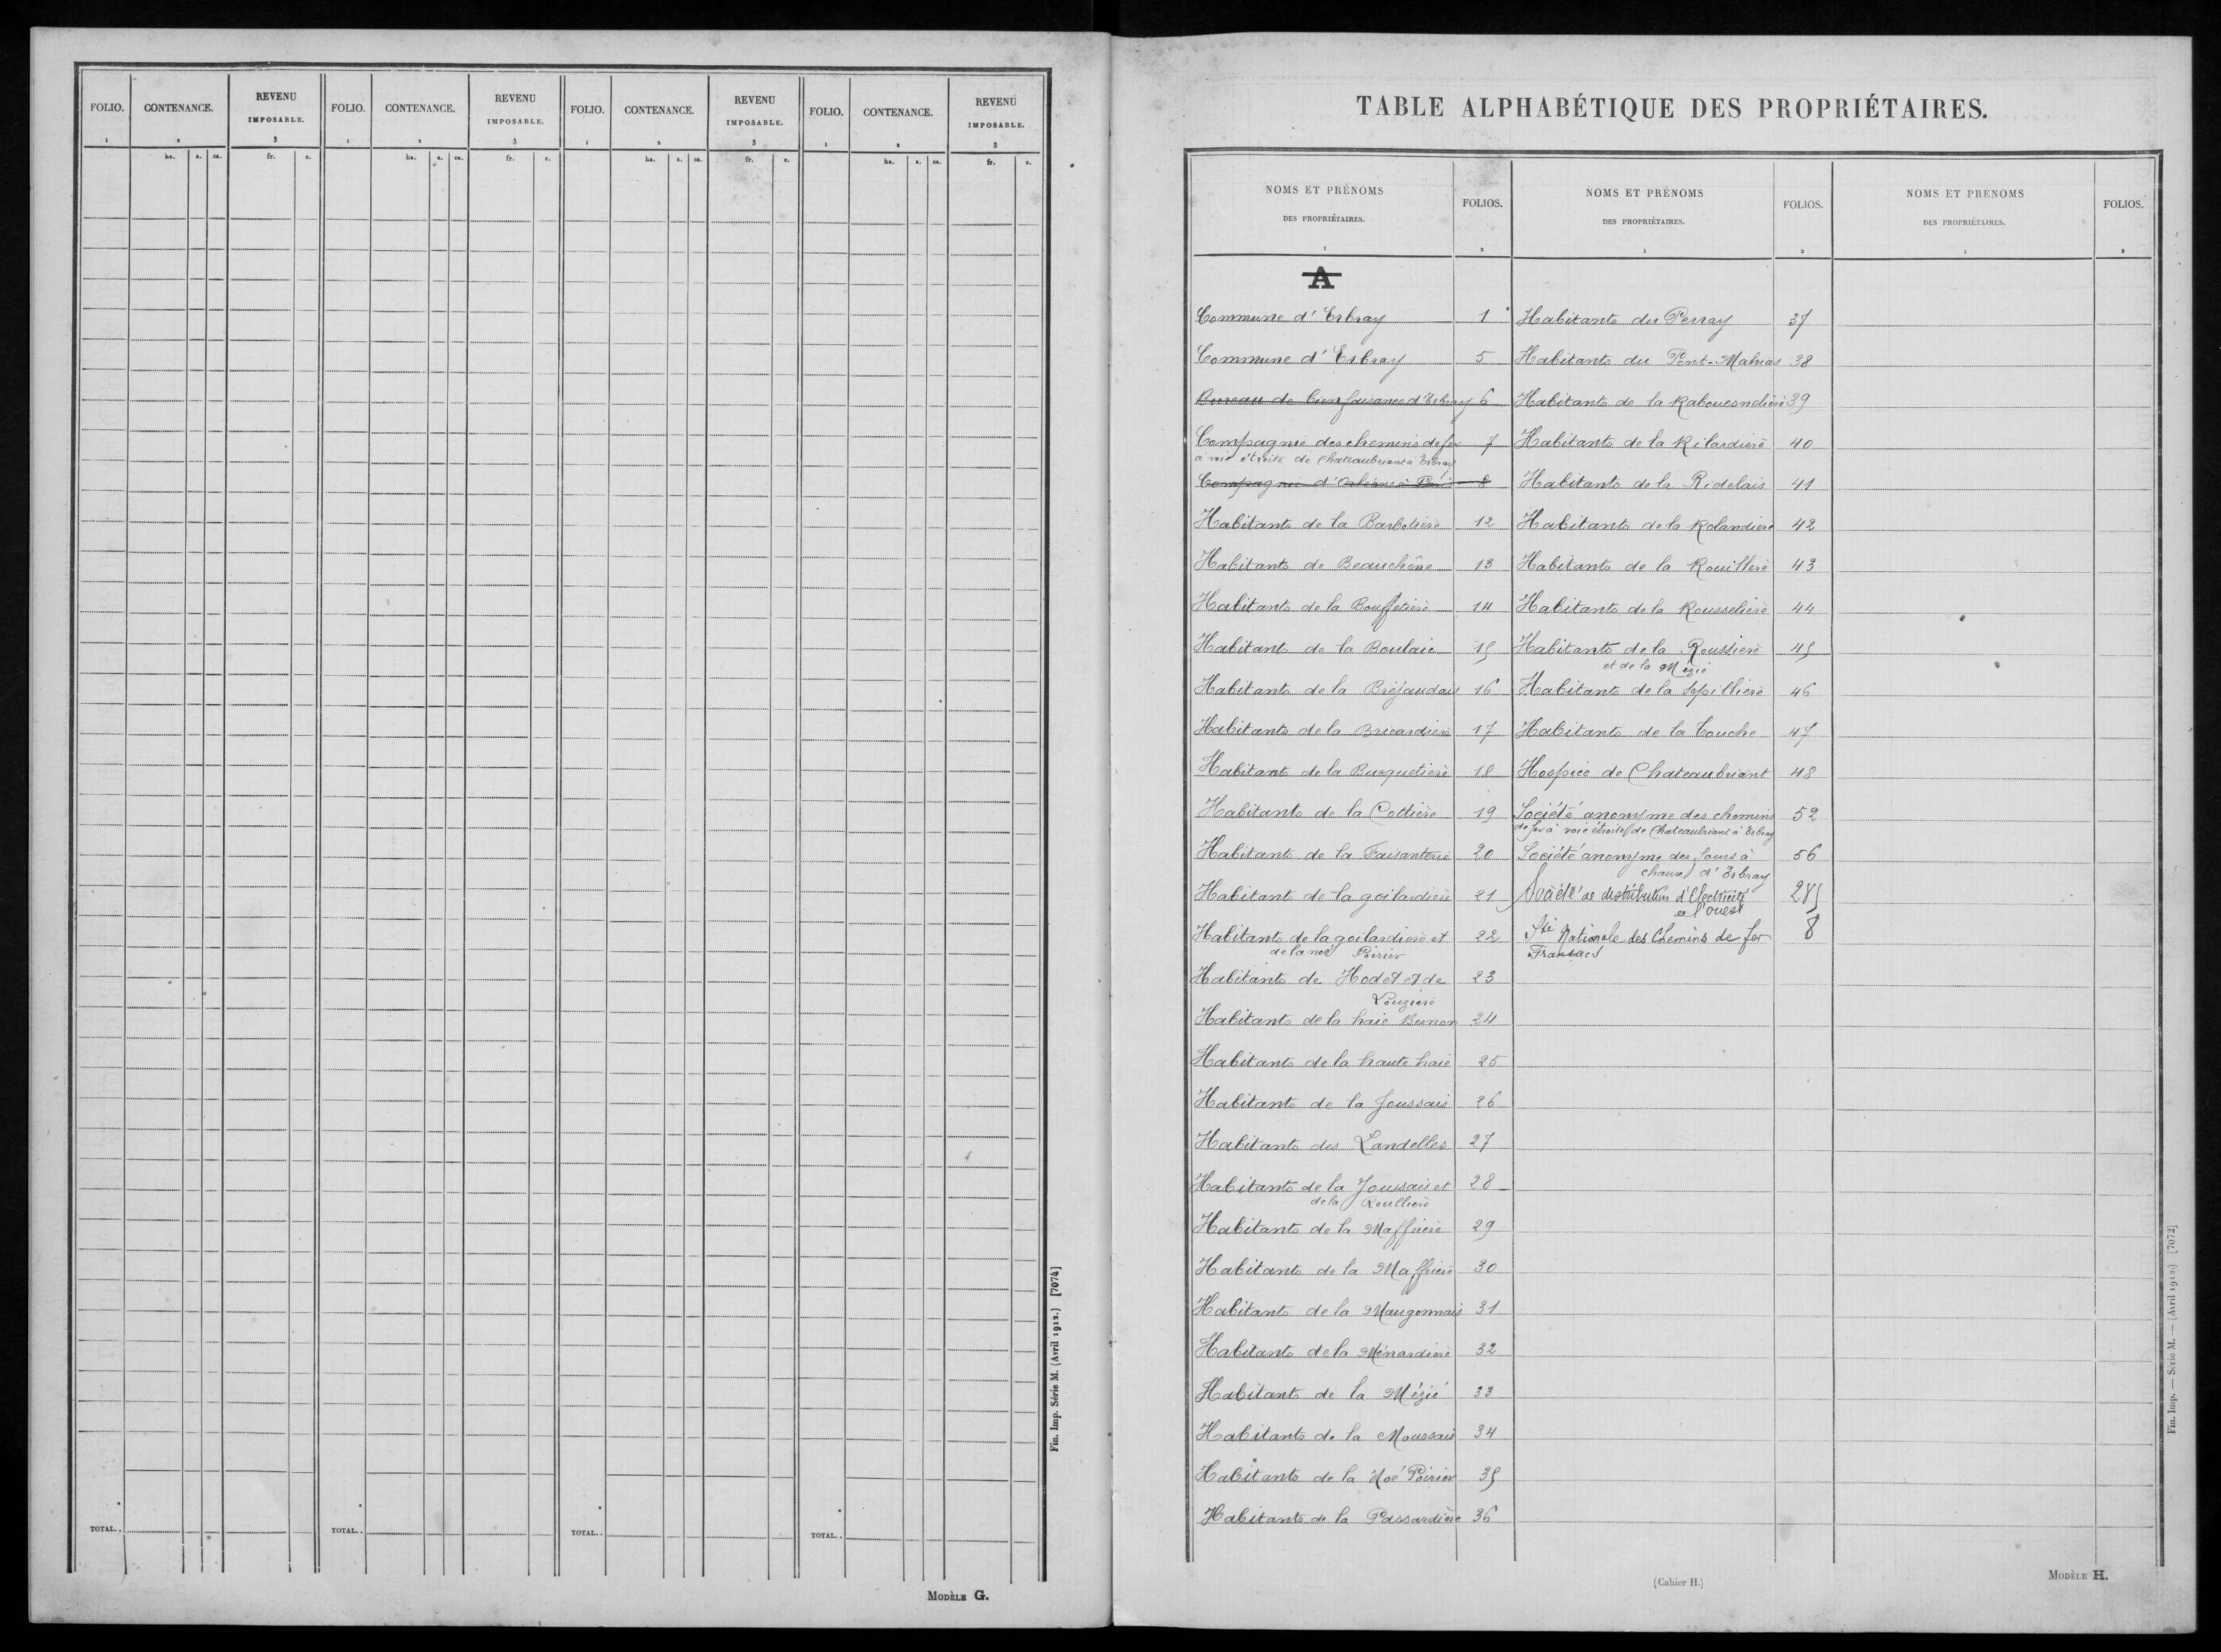 FOLIO. CONTENANCE. REVENU IMPOSABLE. FOLIO. CONTENANCE. REVENU IMPOSABLE. FOLIO. CONTENANCE. REVENU IMPOSABLE. FOLIO. CONTENANCE. REVENU IMPOSABLE.
1 2 3 1 2 3 1 2 3 1 2 3
ha. a. ca. fr. c. ha. a. ca. fr. c. ha. a. ca. fr. c. ha. a. ca. fr. c.
TOTAL.. TOTAL.. TOTAL.. TOTAL..
Fin. Imp. Série M. (Avril 1912.) [7074]
MODÈLE G.
TABLE ALPHABÉTIQUE DES PROPRIÉTAIRES.
NOMS ET PRÉNOMS DES PROPRIÉTAIRES. FOLIOS. NOMS ET PRÉNOMS DES PROPRIÉTAIRES. FOLIOS. NOMS ET PRÉNOMS DES PROPRIÉTAIRES. FOLIOS.
1 2 1 2 1 2
A
Commune d'Erbray 1
Commune d'Erbray 5
Bureau de bienfaisance d'Erbray 6
Compagnie des chemins de fer 7
à voie étroite de Chateaubriant à Erbray
Compagnie d'Orléans à 8
Habitants de la Barbotière 12
Habitants de Beauchêne 13
Habitants de la Bouffetière 14
Habitants de la Boulaie 15
Habitants de la Bréjaudais 16
Habitants de la Bricardière 17
Habitants de la Busquetière 18
Habitants de la Cottière 19
Habitants de la Faisanterie 20
Habitants de la goilardière 21
Habitants de la goilardière et 22
de la noë Poirier
Habitants de Hodet et de 23
Louzière
Habitants de la haie Besnon 24
Habitants de la haute haie 25
Habitants de la Joussais 26
Habitants des Landelles 27
Habitants de la Joussais et 28
de la Roullière
Habitants de la Maffrière 29
Habitants de la Maffrière 30
Habitants de la Maugonnais 31
Habitants de la Ménardière 32
Habitants de la Mézié 33
Habitants de la Moussais 34
Habitants de la Noë Poirier 35
Habitants de la Passardière 36
Habitants du Perray 37
Habitants du Pont-Mahias 38
Habitants de la Rabouesnelière 39
Habitants de la Rilardière 40
Habitants de la Ridelais 41
Habitants de la Rolandière 42
Habitants de la Rouillère 43
Habitants de la Rousselière 44
Habitants de la Roussière 45
et de la Mézié
Habitants de la Sepillière 46
Habitants de la Touche 47
Hospice de Chateaubriant 48
Société anonyme des chemins 52
de fer à voie étroite de Chateaubriant à Erbray
Société anonyme des fours à 56
chaux d'Erbray
Société de distribution d'Electricité 285
de l'ouest
Sté Nationale des Chemins de fer 8
Francais
(Cahier H.)
MODÈLE H.
Fin. Imp. — Série M. — (Avril 1912.) [7072]